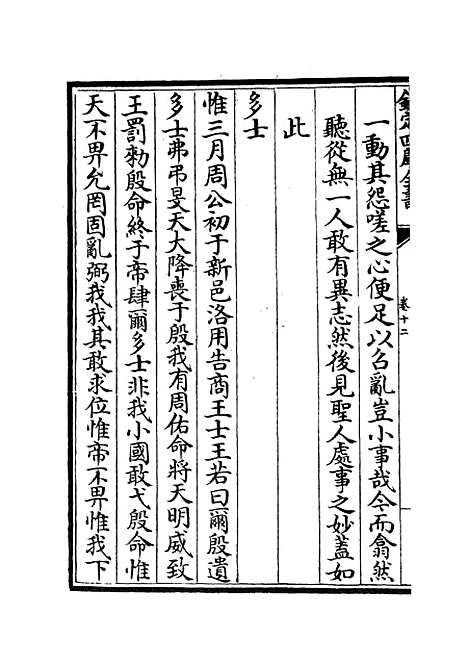 欽定四庫全書
卷十二
一動其怨嗟之心便足以召亂豈小事哉今而翕然
聽從無一人敢有異志然後見聖人處事之妙蓋如
此
多士
惟三月周公初于新邑洛用告商王士王若曰爾殷遺
多士弗弔旻天大降喪于殷我有周佑命將天明威致
王罰勑殷命終于帝肆爾多士非我小國敢弋殷命惟
天不畀允罔固亂弼我我其敢求位惟帝不畀惟我下